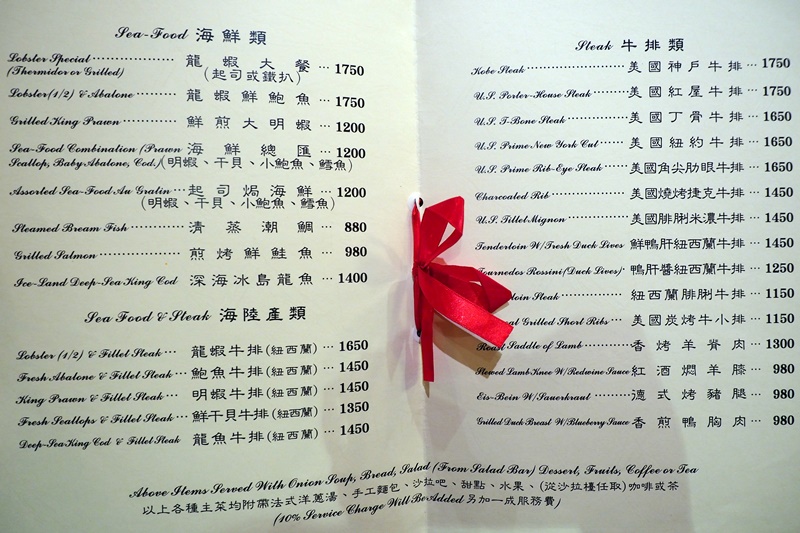 Sea-Food 海鮮類
Lobster Special 龍蝦大餐 1750
(Thermidor or Grilled) (起司或鐵扒)
Lobster(1/2) & Abalone 龍蝦鮮鮑魚 1750
Grilled King Prawn 鮮煎大明蝦 1200
Sea-Food Combination (Prawn 海鮮總匯 1200
Scallop, Baby Abalone, Cod.) (明蝦、干貝、小鮑魚、鱈魚)
Assorted Sea-Food Au Gratin 起司焗海鮮 1200
(明蝦、干貝、小鮑魚、鱈魚)
Steamed Bream Fish 清蒸潮鯛 880
Grilled Salmon 煎烤鮮鮭魚 980
Ice-Land Deep-Sea King Cod 深海冰島龍魚 1400
Sea Food & Steak 海陸產類
Lobster (1/2) & Fillet Steak 龍蝦牛排(紐西蘭) 1650
Fresh Abalone & Fillet Steak 鮑魚牛排(紐西蘭) 1450
King Prawn & Fillet Steak 明蝦牛排(紐西蘭) 1450
Fresh Scallops & Fillet Steak 鮮干貝牛排(紐西蘭) 1350
Deep-Sea King Cod & Fillet Steak 龍魚牛排(紐西蘭) 1450
Steak 牛排類
Kobe Steak 美國神戶牛排 1750
U.S. Porter-House Steak 美國紅屋牛排 1750
U.S. T-Bone Steak 美國丁骨牛排 1650
U.S. Prime New York Cut 美國紐約牛排 1650
U.S. Prime Rib-Eye Steak 美國角尖肋眼牛排 1650
Charcoaled Rib 美國燒烤捷克牛排 1450
U.S. Tillet Mignon 美國腓脷米濃牛排 1450
Tenderloin W/Fresh Duck Lives 鮮鴨肝紐西蘭牛排 1450
Tournedos Rossini (Duck Lives) 鴨肝醬紐西蘭牛排 1250
Steak 紐西蘭腓脷牛排 1150
Grilled Short Ribs 美國炭烤牛小排 1150
Roast Saddle of Lamb 香烤羊脊肉 1300
Stewed Lamb Knee W/Redwine Sauce 紅酒燜羊膝 980
Eis-Bein W/Sauerkraut 德式烤豬腿 980
Grilled Duck Breast W/Blueberry Sauce 香煎鴨胸肉 980
Above Items Served With Onion Soup, Bread, Salad (From Salad Bar) Dessert, Fruits, Coffee or Tea
以上各種主菜均附帶法式洋蔥湯、手工麵包、沙拉吧、甜點、水果、(從沙拉檯任取)咖啡或茶
(10% Service Charge Will Be Added 另加一成服務費)